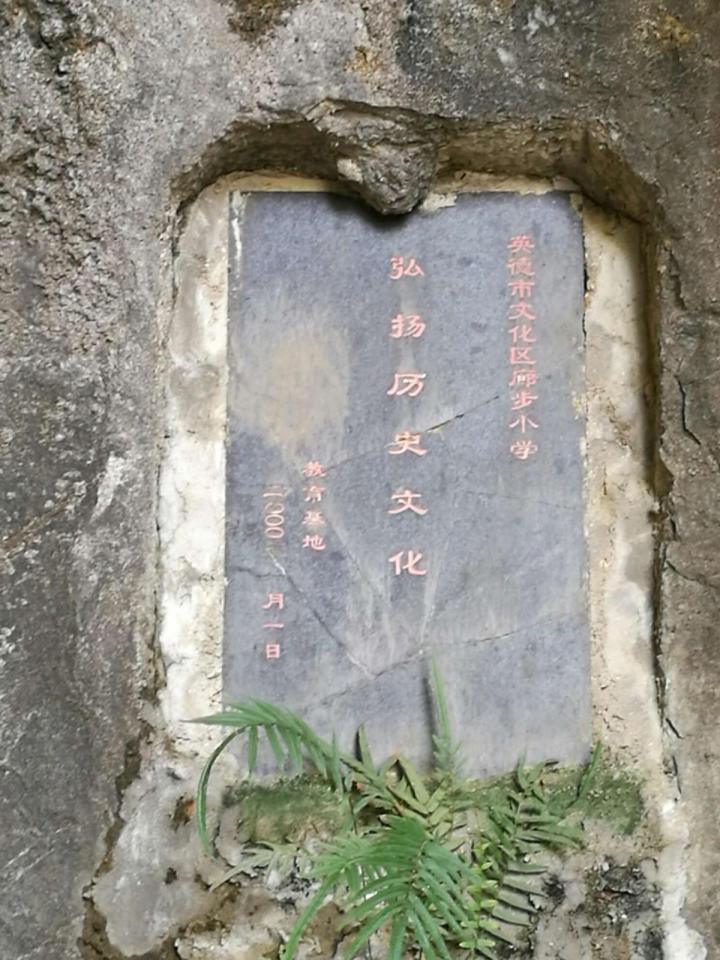 英德市文化区廊步小学
弘扬历史文化
教育基地
二00 月一日